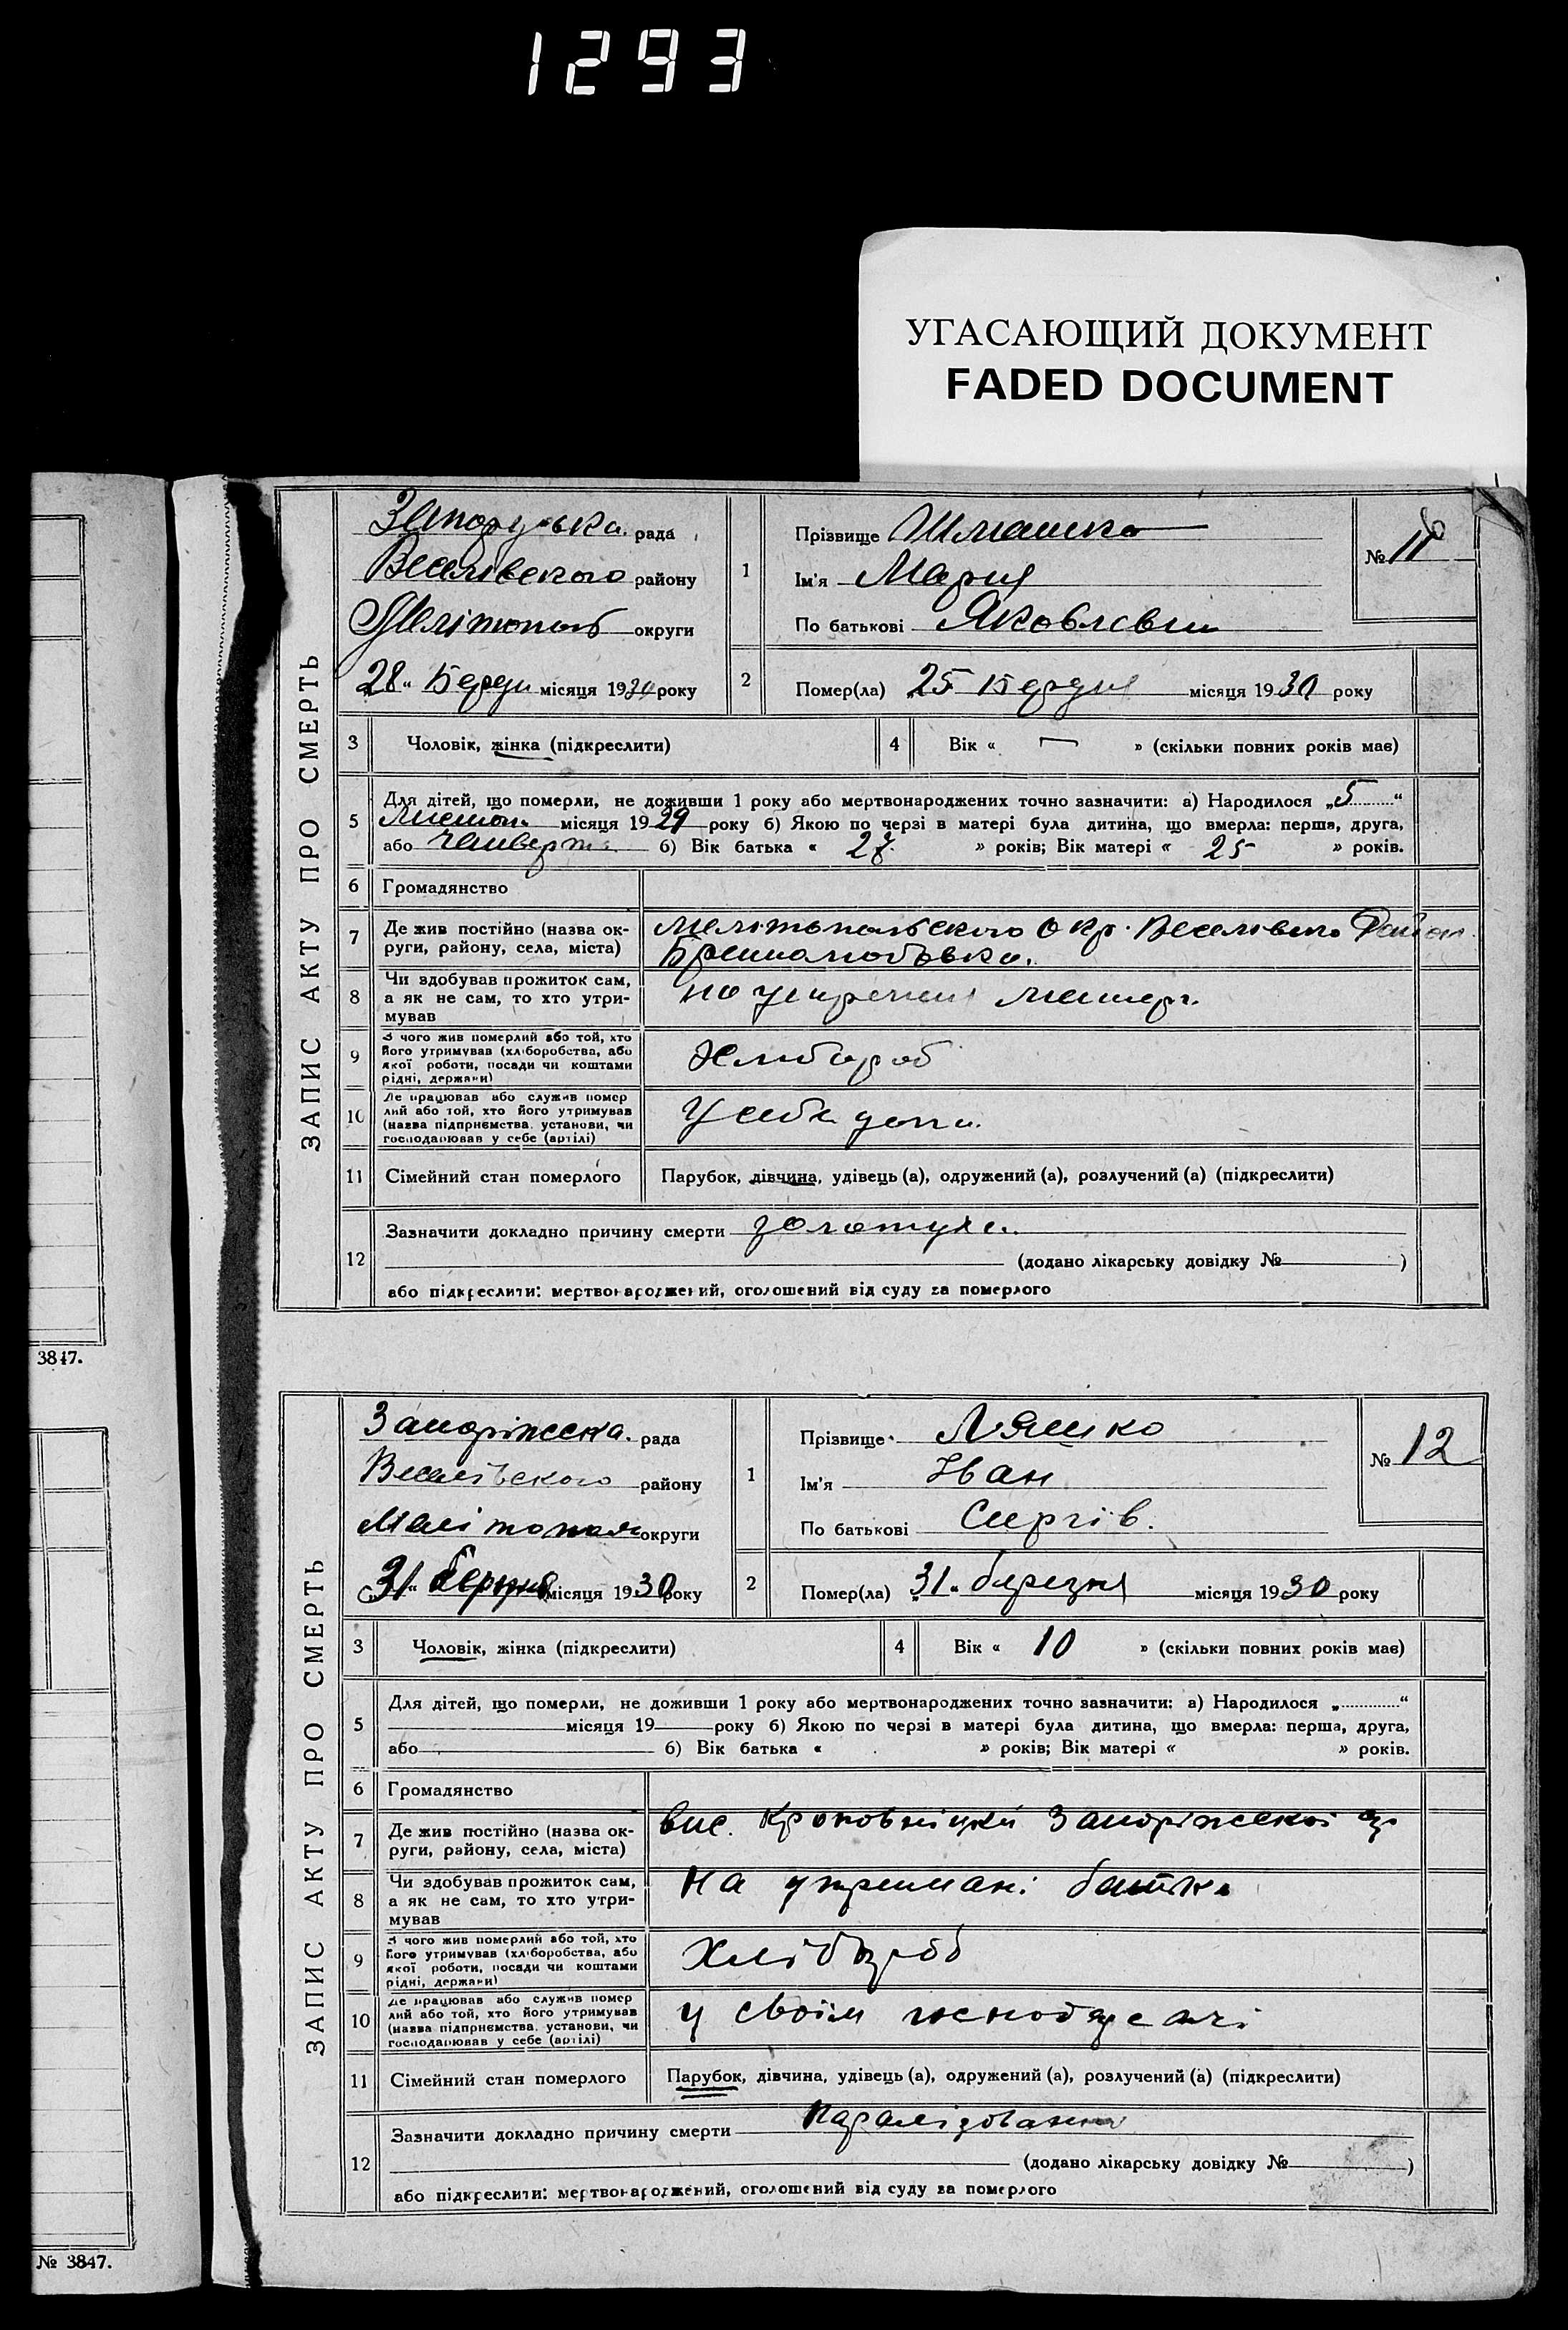 1293
УГАСАЮЩИЙ ДОКУМЕНТ
FADED DOCUMENT
ЗАПИС АКТУ ПРО СМЕРТЬ
рада
Веселівського району
округи
28 " місяця 1930 року
1
Прізвище
Ім'я Мария
По батькові Яковлевн
№ 11
2
Помер(ла) 25 місяця 1930 року
3 Чоловік, жінка (підкреслити)
4 Вік « — » (скільки повних років має)
5 Для дітей, що померли, не доживши 1 року або мертвонароджених точно зазначити: а) Народилося „5“
місяця 1929 року б) Якою по черзі в матері була дитина, що вмерла: перша, друга,
або б) Вік батька « 27 » років; Вік матері « 25 » років.
6 Громадянство
7 Де жив постійно (назва округи, району, села, міста)
Мелітопольского Окр. Веселівського Район
8 Чи здобував прожиток сам,
а як не сам, то хто утри-
мував
матері
9 З чого жив померлий або той, хто
його утримував (хліборобства, або
якої роботи, посади чи коштами
рідні, держави)
Хлибороб
10 Де працював або служив помер
лий або той, хто його утримував
(назва підприємства, установи, чи
господарював у себе (артілі)
У себе дома
11 Сімейний стан померлого
Парубок, дівчина, удівець (а), одружений (а), розлучений (а) (підкреслити)
12 Зазначити докладно причину смерти золотуха
(додано лікарську довідку № )
або підкреслити: мертвонароджений, оголошений від суду за померлого
3847.
ЗАПИС АКТУ ПРО СМЕРТЬ
Запоріжська рада
Веселівського району
Мелітополь округи
31 " березня місяця 1930 року
1
Прізвище Ляшко
Ім'я Іван
По батькові Сиргів.
№ 12
2
Помер(ла) „31“ березня місяця 1930 року
3 Чоловік, жінка (підкреслити)
4 Вік « 10 » (скільки повних років має)
5 Для дітей, що померли, не доживши 1 року або мертвонароджених точно зазначити: а) Народилося „ “
місяця 19 року б) Якою по черзі в матері була дитина, що вмерла: перша, друга,
або б) Вік батька « » років; Вік матері « » років.
6 Громадянство
7 Де жив постійно (назва ок-
руги, району, села, міста)
Запоріжскої
8 Чи здобував прожиток сам,
а як не сам, то хто утри-
мував
На утримані батька
9 З чого жив померлий або той, хто
його утримував (хліборобства, або
якої роботи, посади чи коштами
рідні, держави)
Хлібороб
10 Де працював або служив помер
лий або той, хто його утримував
(назва підприємства, установи, чи
господарював у себе (артілі)
у своїм
11 Сімейний стан померлого
Парубок, дівчина, удівець (а), одружений (а), розлучений (а) (підкреслити)
12 Зазначити докладно причину смерти Паралізования
(додано лікарську довідку № )
або підкреслити: мертвонароджений, оголошений від суду за померлого
№ 3847.